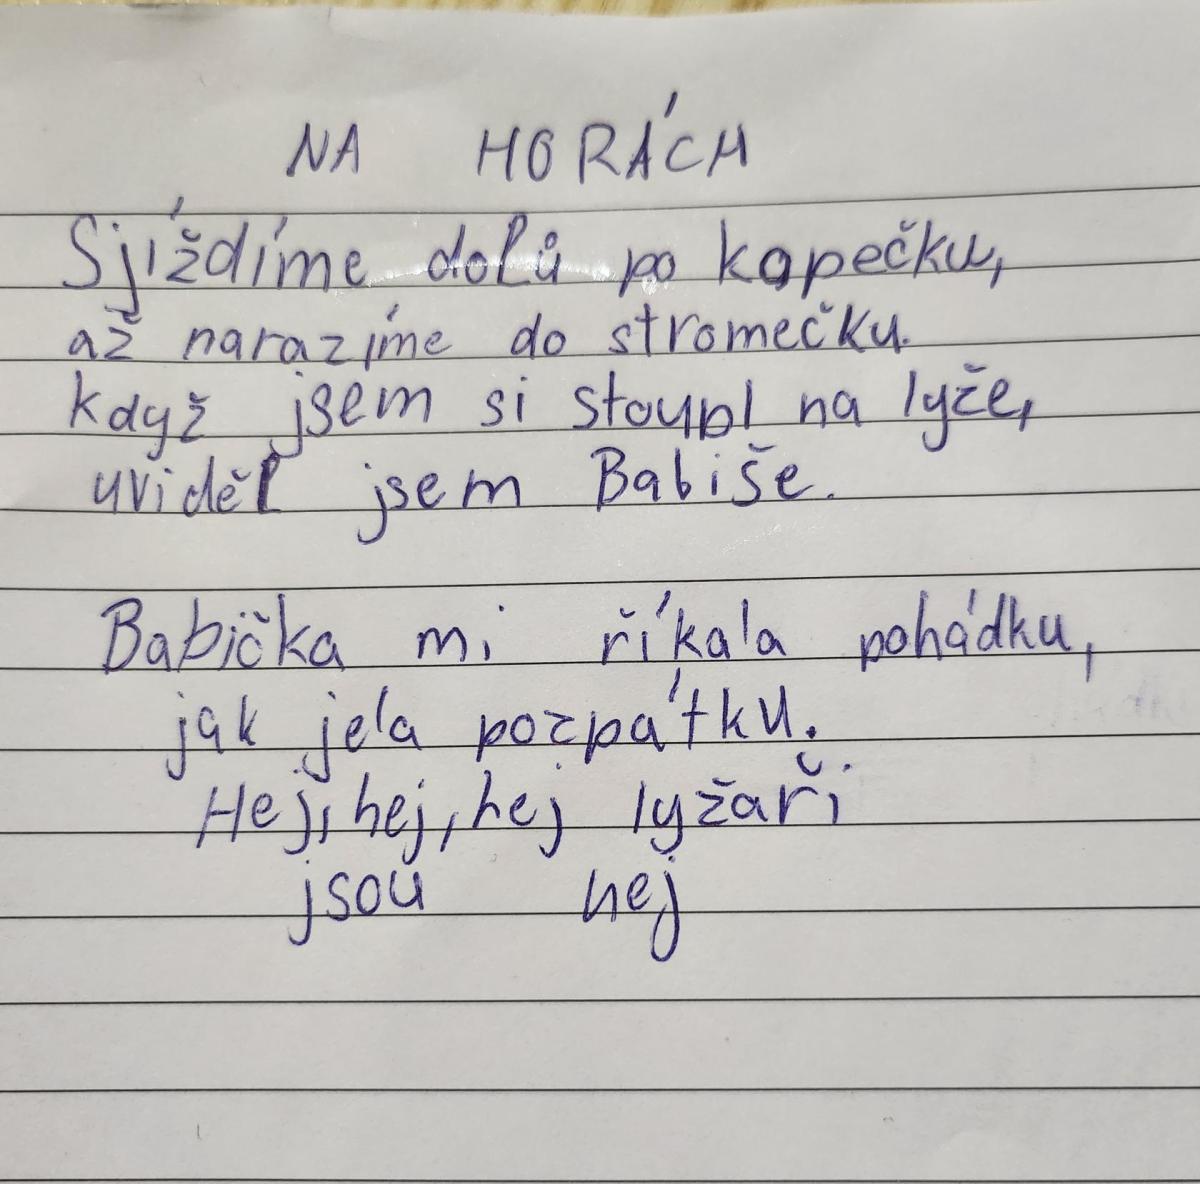 NA HORÁCH
Sjíždíme dolů po kopečku,
až narazíme do stromečku.
když jsem si stoupl na lyže,
uviděl jsem Babiše.
Babička mi říkala pohádku,
jak jela pozpátku.
Hej, hej, hej lyžaři
jsou hej